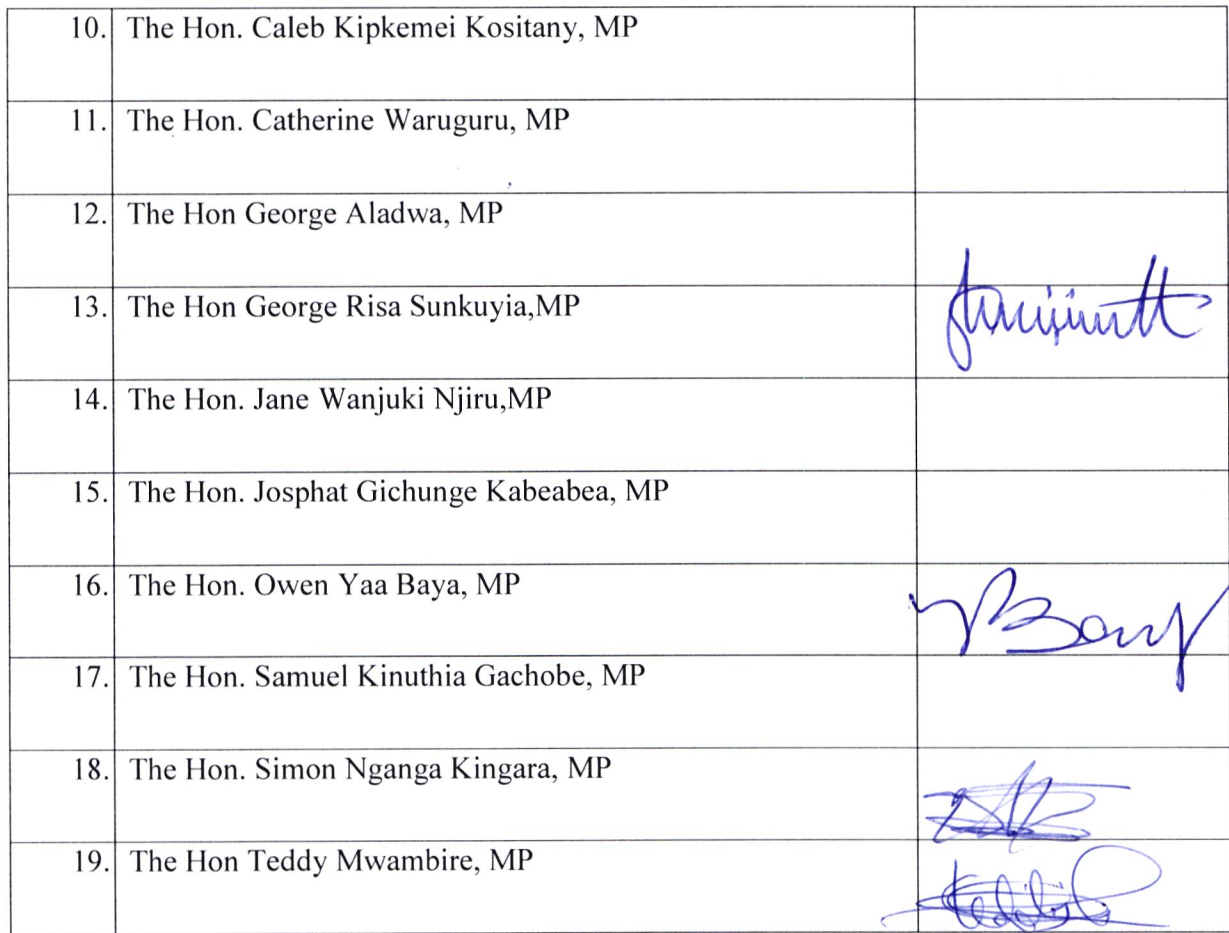 10. The Hon. Caleb Kipkemei Kositany, MP
11. The Hon. Catherine Waruguru, MP
12. The Hon George Aladwa, MP
13. The Hon George Risa Sunkuyia,MP
14. The Hon. Jane Wanjuki Njiru,MP
15. The Hon. Josphat Gichunge Kabeabea, MP
16. The Hon. Owen Yaa Baya, MP
17. The Hon. Samuel Kinuthia Gachobe, MP
18. The Hon. Simon Nganga Kingara, MP
19. The Hon Teddy Mwambire, MP